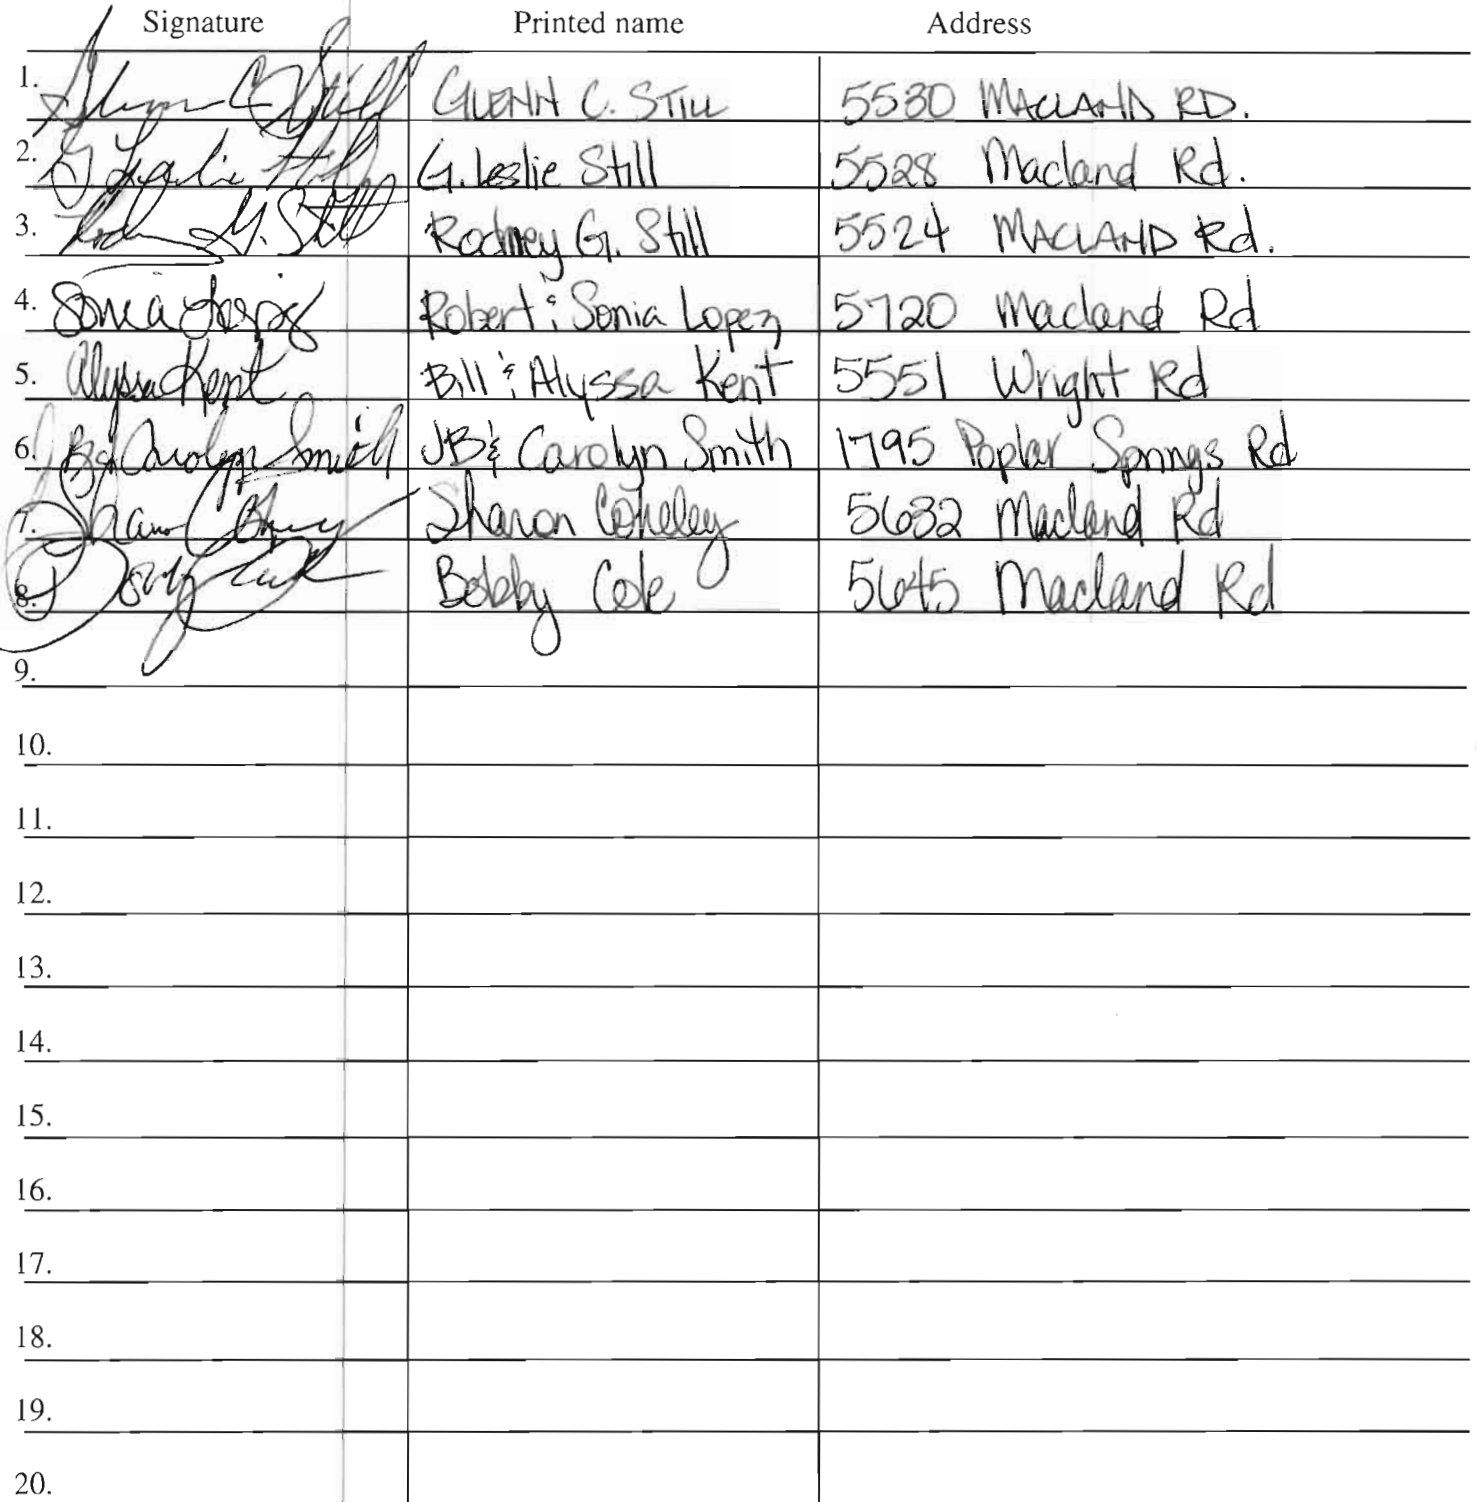 Signature Printed name Address
1. Glenn C Still GLENN C. STILL 5530 MACLAND RD.
2. G Leslie Still G. Leslie Still 5528 Macland Rd.
3. Rodney G. Still Rodney G. Still 5524 MACLAND Rd.
4. Sonia Lopez Robert & Sonia Lopez 5720 Macland Rd
5. Alyssa Kent Bill & Alyssa Kent 5551 Wright Rd
6. JB & Carolyn Smith JB & Carolyn Smith 1795 Poplar Springs Rd
7. Sharon Sharon 5632 Macland Rd
8. Bobby Bobby Cole 5645 Macland Rd
9.
10.
11.
12.
13.
14.
15.
16.
17.
18.
19.
20.